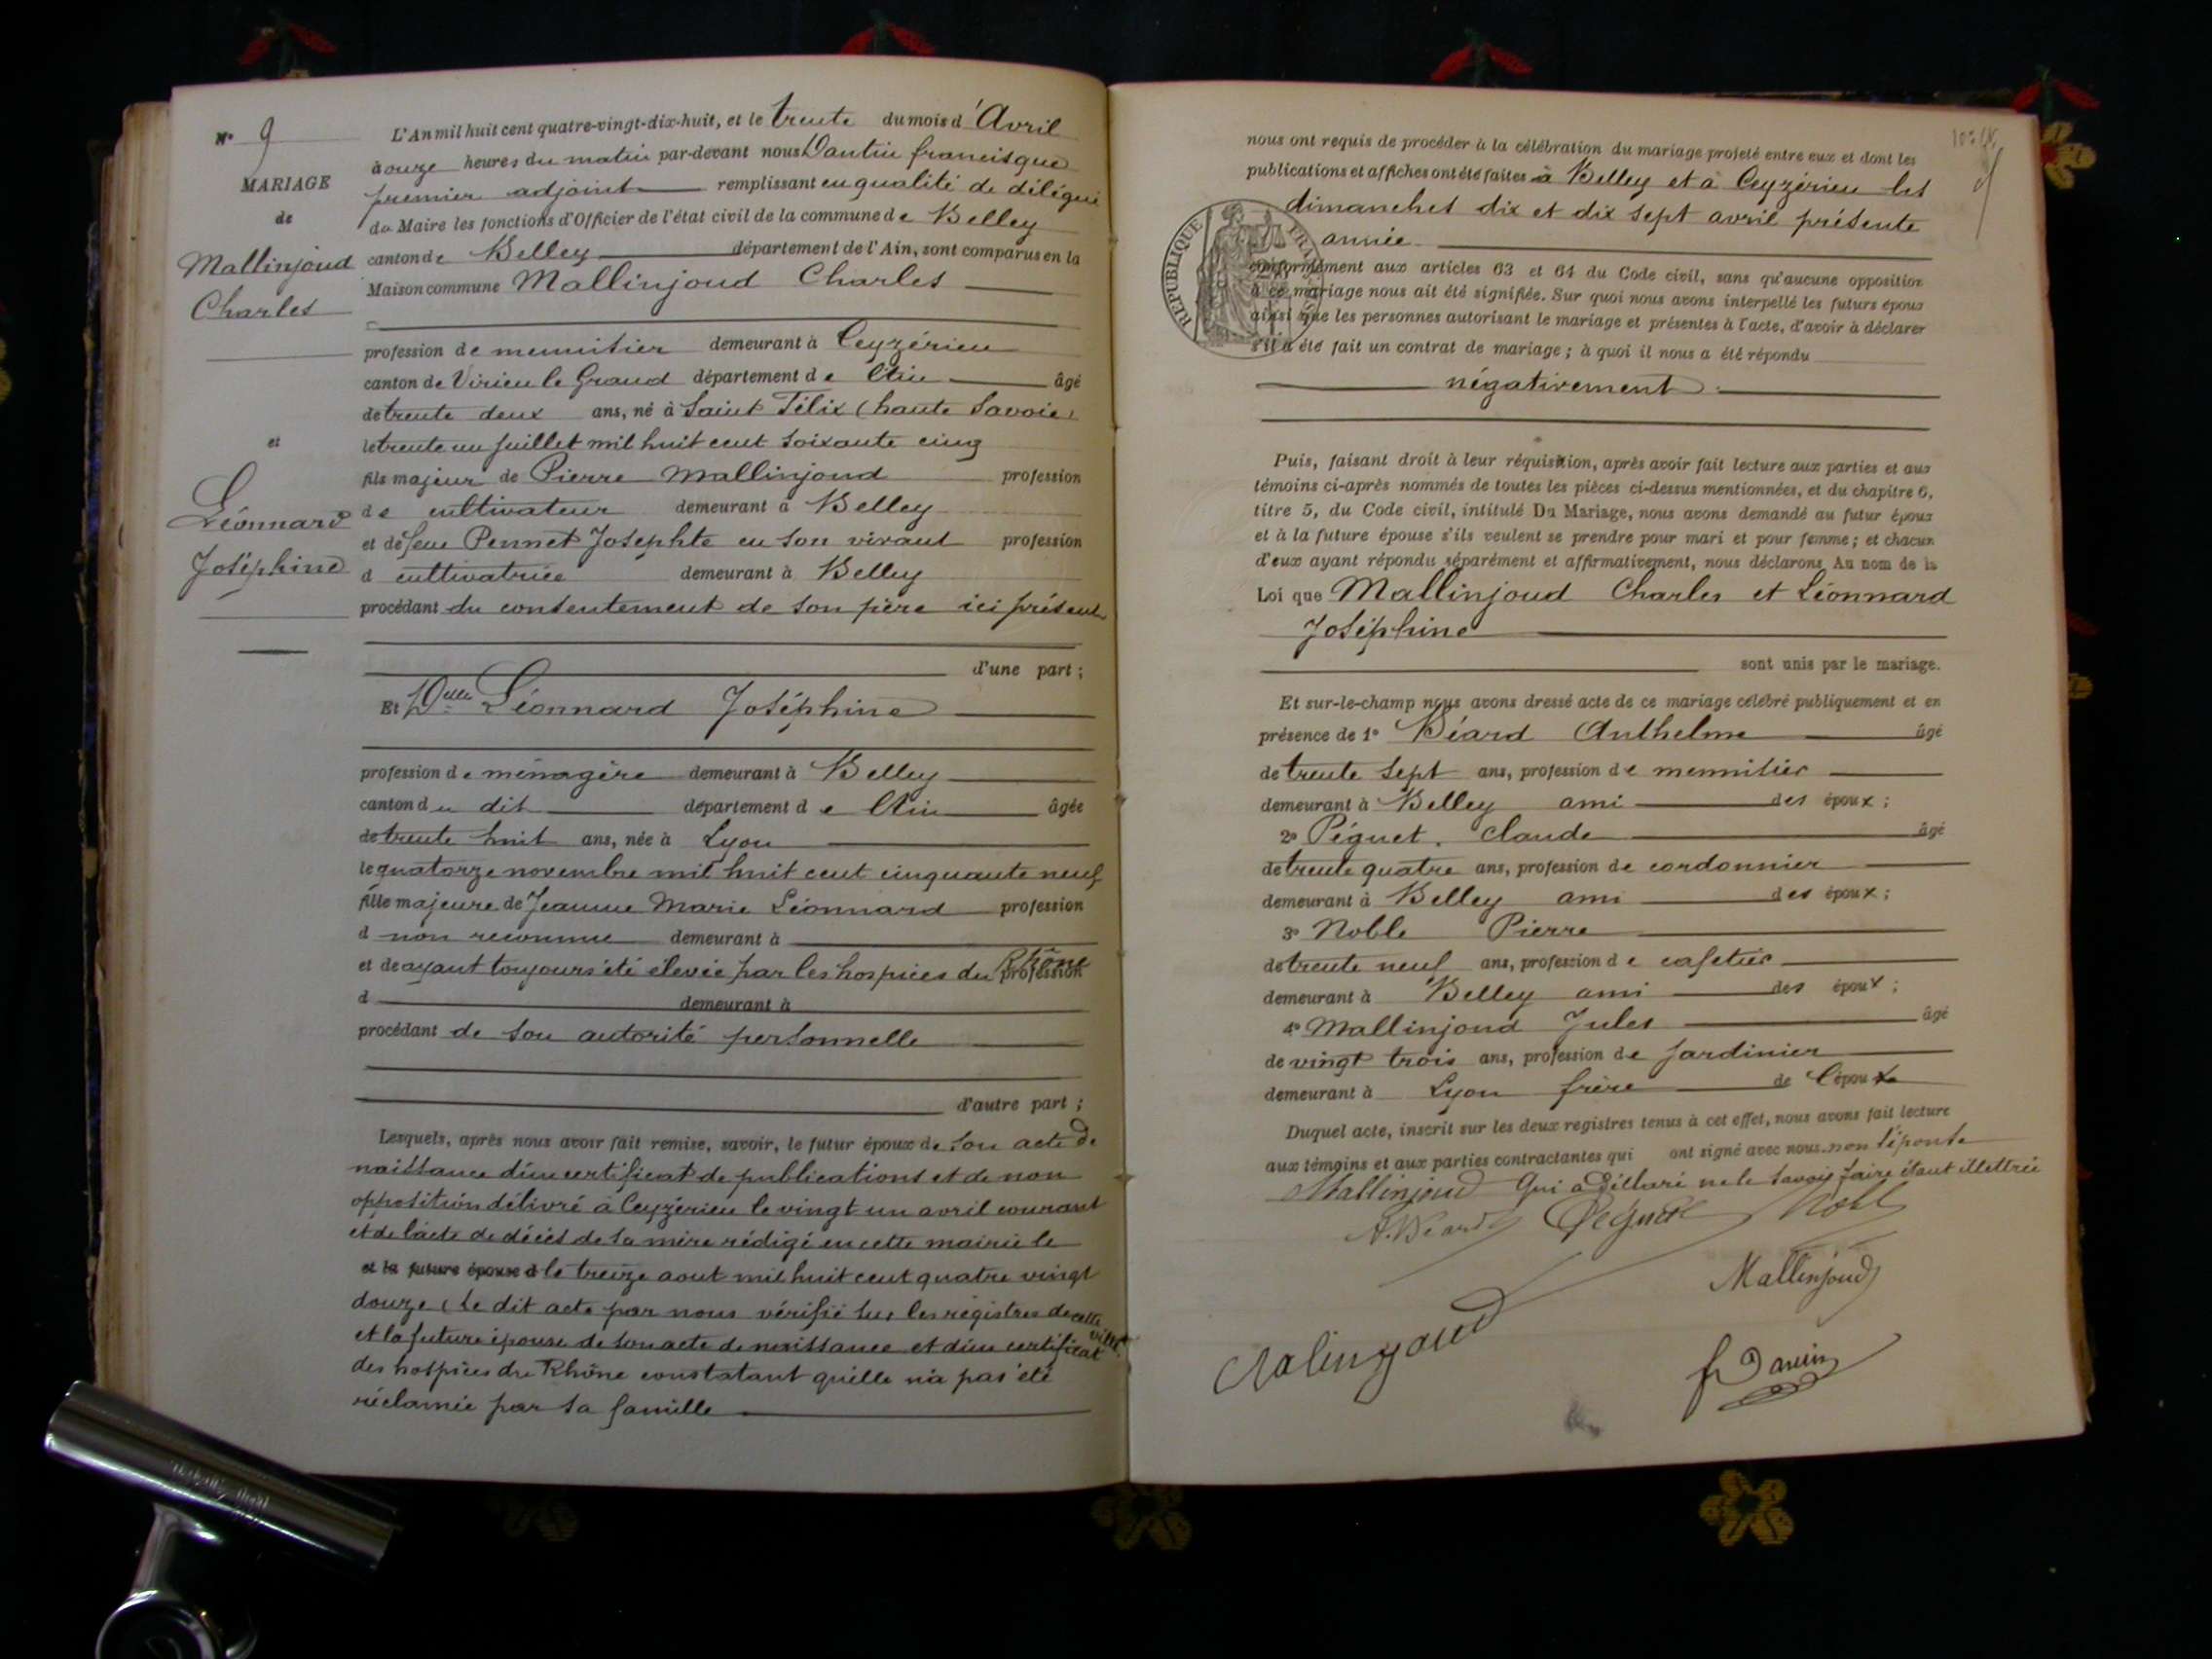 N° 9
MARIAGE
de
Mallinjoud
Charles
et
Léonnard
Joséphine
L'An mil huit cent quatre-vingt-dix-huit, et le trente du mois d'Avril
à onze heures du matin par-devant nous Dantin francisque
premier adjoint remplissant en qualité de délégué
du Maire les fonctions d'Officier de l'état civil de la commune de Belley
canton de Belley département de l'Ain, sont comparus en la
Maison commune Mallinjoud Charles
profession de menuisier demeurant à Ceyzérieu
canton de Virieu le Grand département de l'Ain âgé
de trente deux ans, né à Saint Félix (haute Savoie)
le trente un juillet mil huit cent soixante cinq
fils majeur de Pierre Mallinjoud profession
de cultivateur demeurant à Belley
et de feue Pennet Josephte en son vivant profession
d cultivatrice demeurant à Belley
procédant du consentement de son père ici présent
d'une part ;
Et Dlle Léonnard Joséphine
profession de ménagère demeurant à Belley
canton du dit département de l'Ain âgée
de trente huit ans, née à Lyon
le quatorze novembre mil huit cent cinquante neuf
fille majeure de Jeanne Marie Léonnard profession
d non reconnue demeurant à
et de ayant toujours été élevée par les hospices du Rhône profession
d demeurant à
procédant de son autorité personnelle
d'autre part ;
Lesquels, après nous avoir fait remise, savoir, le futur époux de son acte de
naissance d'un certificat de publications et de non
opposition délivré à Ceyzérieu le vingt un avril courant
et de l'acte de décès de sa mère rédigé en cette mairie le
et la future épouse d le treize aout mil huit cent quatre vingt
douze (le dit acte par nous vérifié sur les registres de cette ville)
et la future épouse de son acte de naissance et d'un certificat
des hospices du Rhône constatant qu'elle n'a pas été
réclamée par sa famille
nous ont requis de procéder à la célébration du mariage projeté entre eux et dont les
publications et affiches ont été faites à Belley et à Ceyzérieu les
dimanches dix et dix sept avril présente
année
RÉPUBLIQUE FRANÇAISE
conformément aux articles 63 et 64 du Code civil, sans qu'aucune opposition
à ce mariage nous ait été signifiée. Sur quoi nous avons interpellé les futurs époux
ainsi que les personnes autorisant le mariage et présentes à l'acte, d'avoir à déclarer
s'il a été fait un contrat de mariage ; à quoi il nous a été répondu
négativement
Puis, faisant droit à leur réquisition, après avoir fait lecture aux parties et aux
témoins ci-après nommés de toutes les pièces ci-dessus mentionnées, et du chapitre 6,
titre 5, du Code civil, intitulé Du Mariage, nous avons demandé au futur époux
et à la future épouse s'ils veulent se prendre pour mari et pour femme ; et chacun
d'eux ayant répondu séparément et affirmativement, nous déclarons Au nom de la
Loi que Mallinjoud Charles et Léonnard
Joséphine
sont unis par le mariage.
Et sur-le-champ nous avons dressé acte de ce mariage célébré publiquement et en
présence de 1° Béard Anthelme âgé
de trente sept ans, profession de menuisier
demeurant à Belley ami des époux ;
2° Péguet. Claude âgé
de trente quatre ans, profession de cordonnier
demeurant à Belley ami des époux ;
3° Noble Pierre
de trente neuf ans, profession de cafetier
demeurant à Belley ami des époux ;
4° Mallinjoud Jules âgé
de vingt trois ans, profession de jardinier
demeurant à Lyon frère de l'époux
Duquel acte, inscrit sur les deux registres tenus à cet effet, nous avons fait lecture
aux témoins et aux parties contractantes qui ont signé avec nous non l'épouse
Mallinjoud Qui a déclaré ne le savoir faire étant illettrée
A. Béard Péguet Noble
Mallinjoud